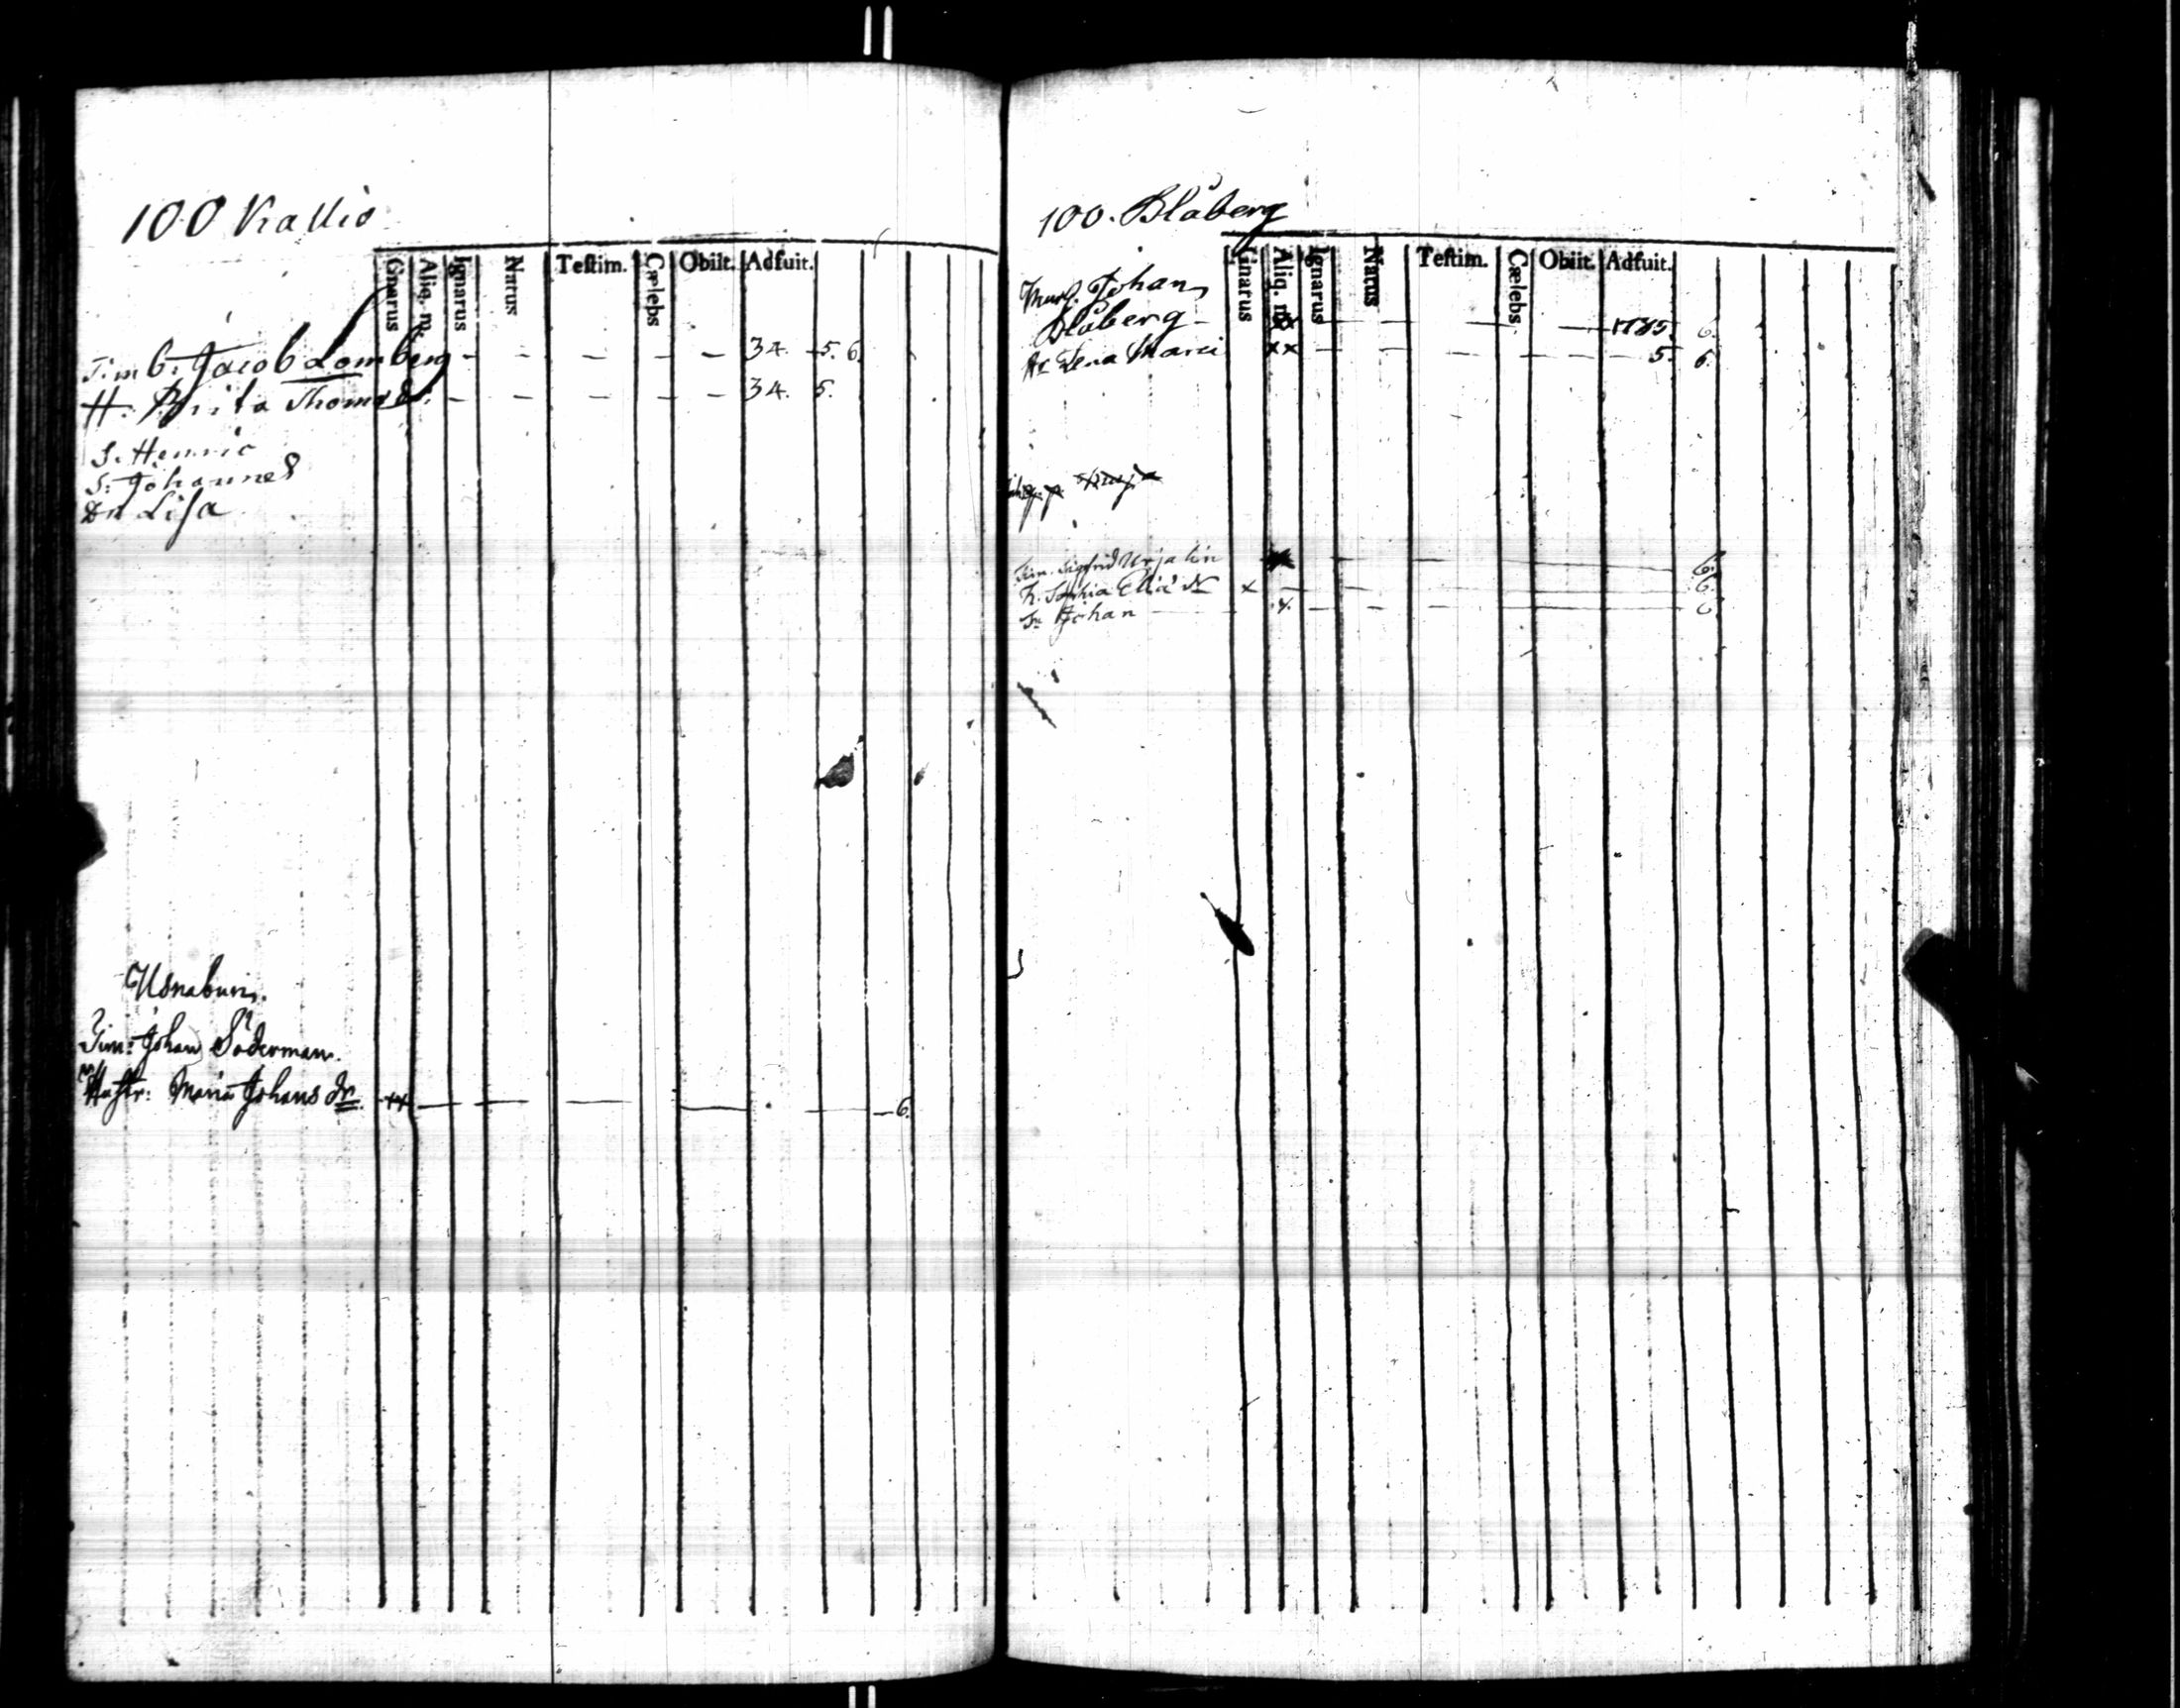 100 Kallio
Gnarus Aliq. m. Ignarus Natus Testim. Cælebs Obiit. Adfuit.
Timb. Jacob Lomberg - - - - - 34. 5. 6.
H. Brita Thoma dr - - - - - 34. 5.
S. Henric
S. Johannes
Dr Lisa
Usnaburi.
Tim: Johan Söderman.
Hustr: Maria Johans dr. ++ 6.
100. Blåberg
Gnarus Aliq. m. Ignarus Natus Testim. Cælebs Obiit. Adfuit.
Johan
Blåberg - 1785. 6.
Lena Marci xx 5. 6.
Tim. Sigfrid Urjalin 6.
h. Sophia Elia dr x 6.
Sn Johan x. 6.